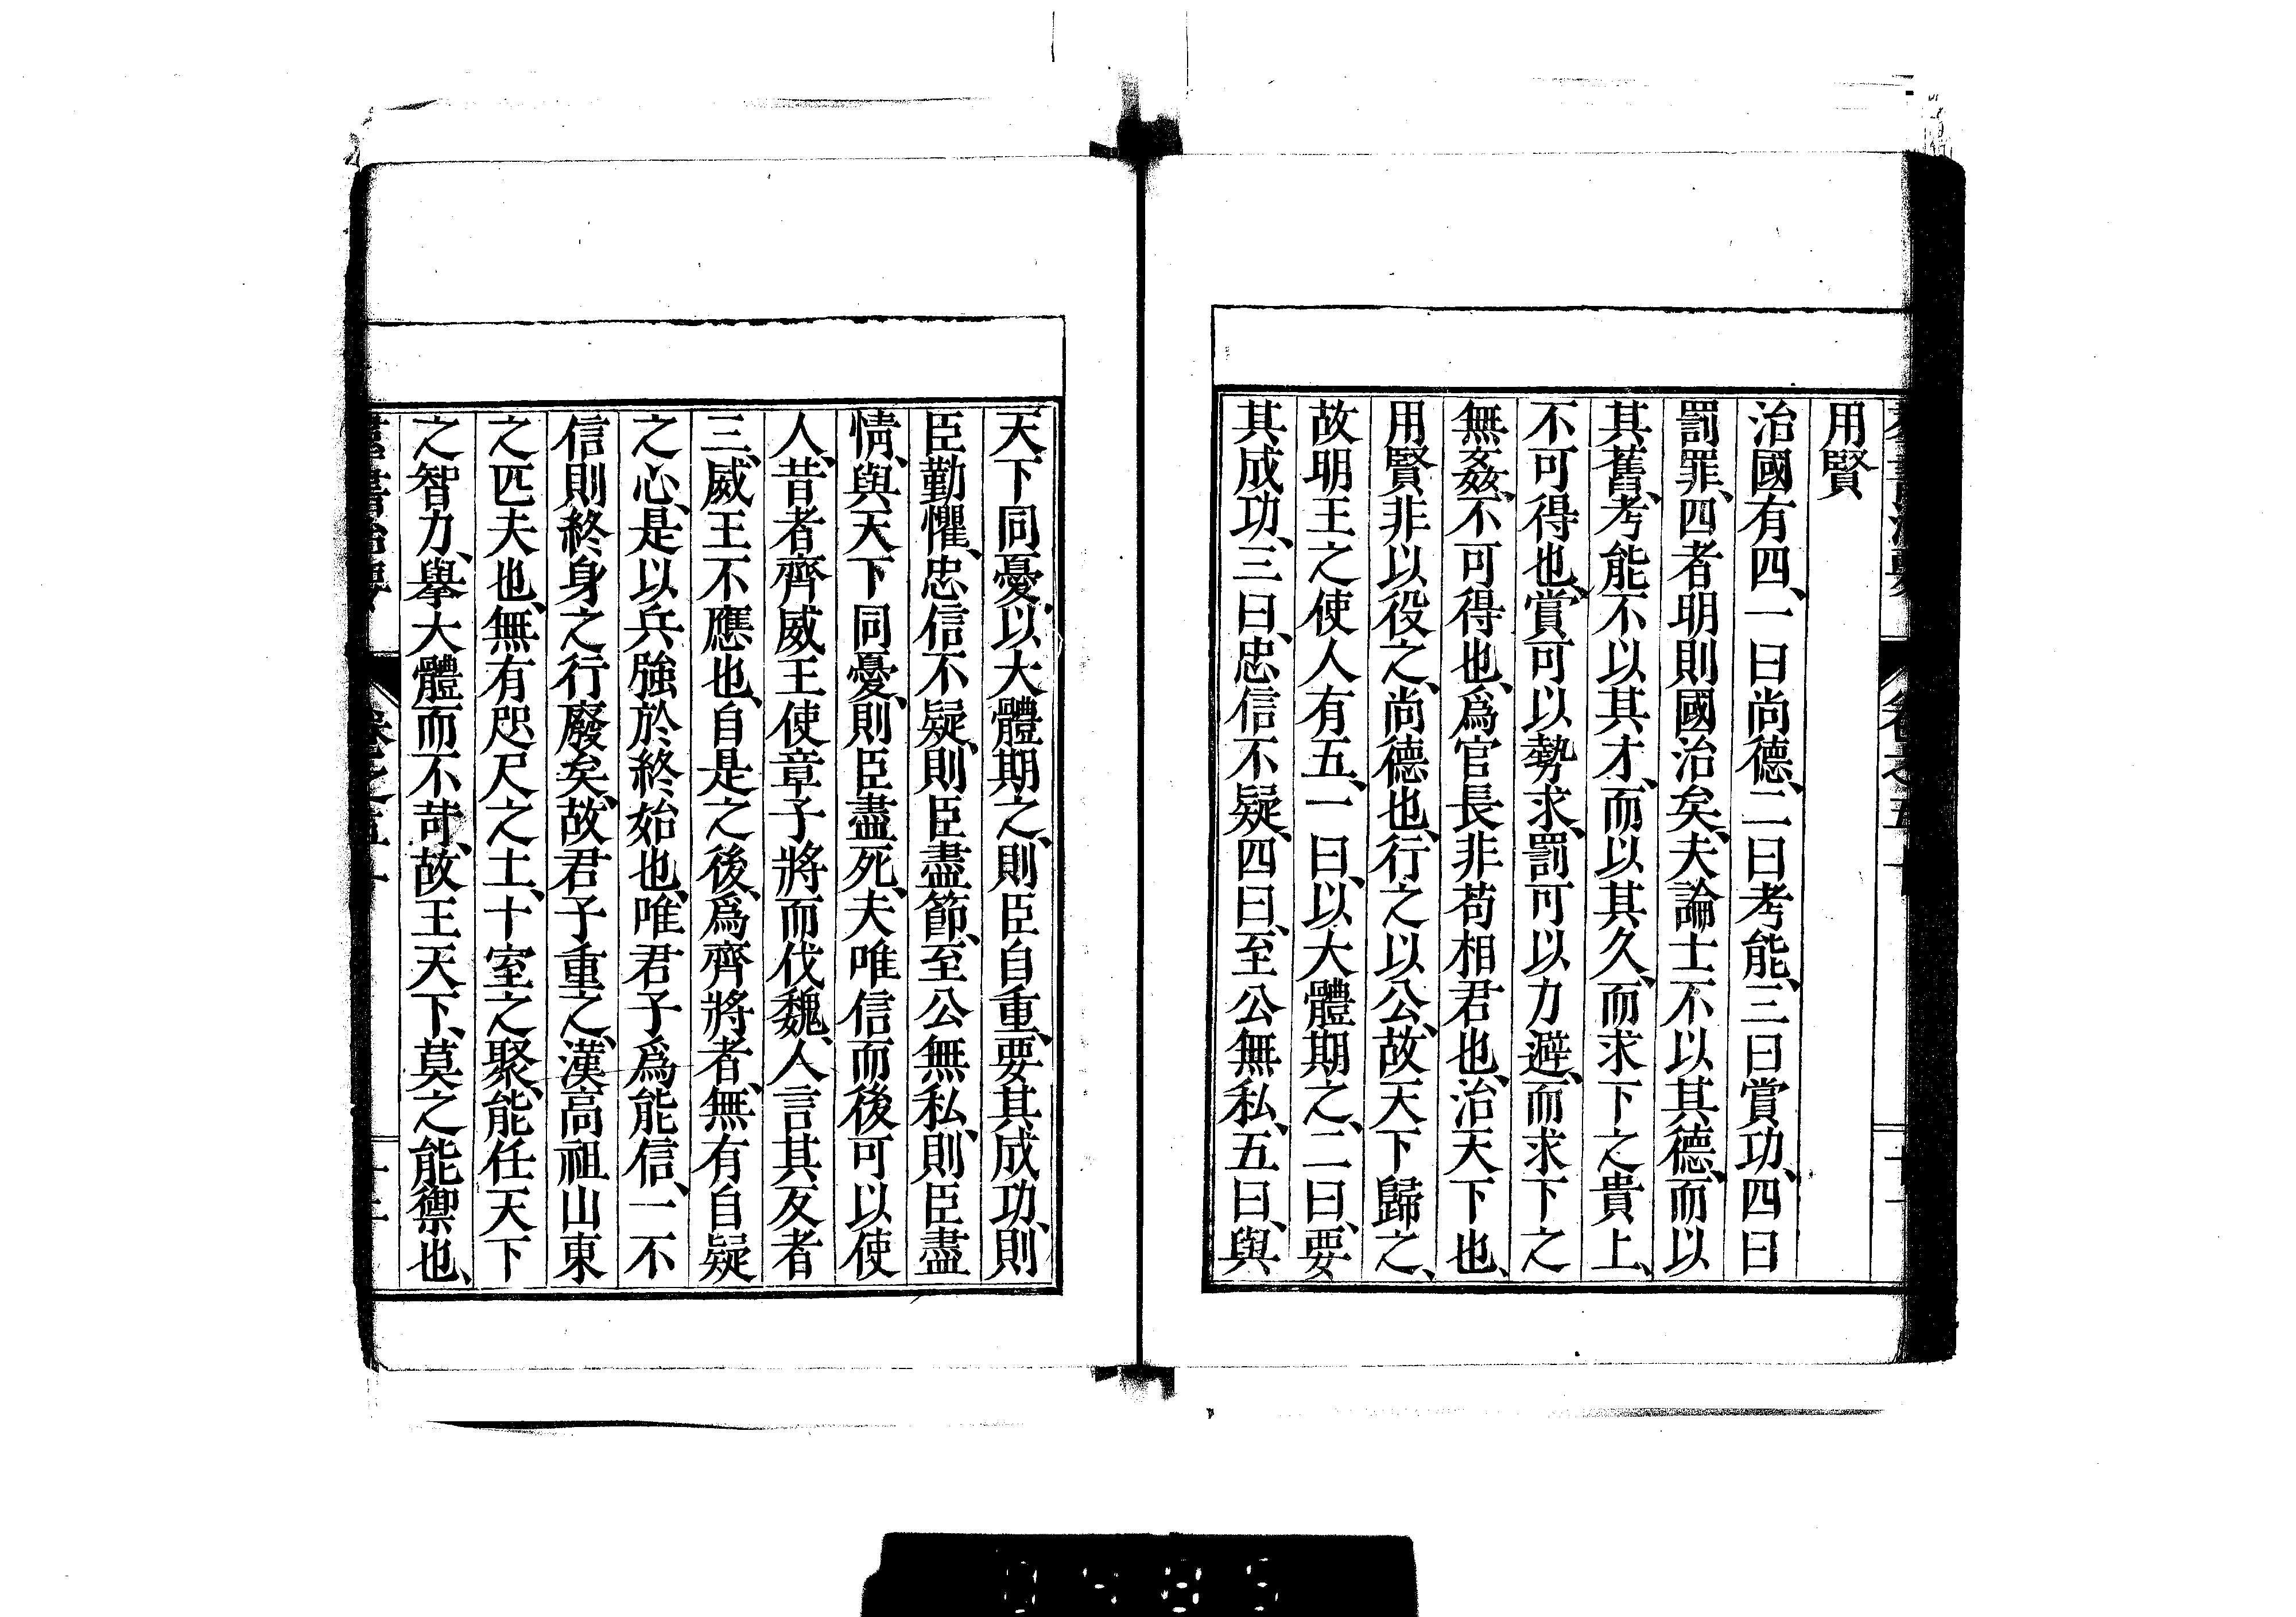 用賢
治國有四、一曰尚德、二曰考能、三曰賞功、四曰
罰罪、四者明則國治矣、夫論士不以其德、而以
其舊、考能不以其才、而以其久、而求下之貴上、
不可得也、賞可以勢求、罰可以力避、而求下之
無姦、不可得也、爲官長非苟相君也、治天下也、
用賢非以役之、尚德也、行之以公、故天下歸之、
故明王之使人有五、一曰、以大體期之、二曰、要
其成功、三曰、忠信不疑、四曰、至公無私、五曰、與
天下同憂、以大體期之、則臣自重、要其成功、則
臣勤懼、忠信不疑、則臣盡節、至公無私、則臣盡
情、與天下同憂、則臣盡死、夫唯信而後可以使
人、昔者齊威王使章子將而伐魏、人言其反者
三、威王不應也、自是之後、爲齊將者、無有自疑
之心、是以兵強於終始也、唯君子爲能信、一不
信則終身之行廢矣、故君子重之、漢高祖山東
之匹夫也、無有咫尺之土、十室之聚、能任天下
之智力、舉大體而不苛、故王天下、莫之能禦也、